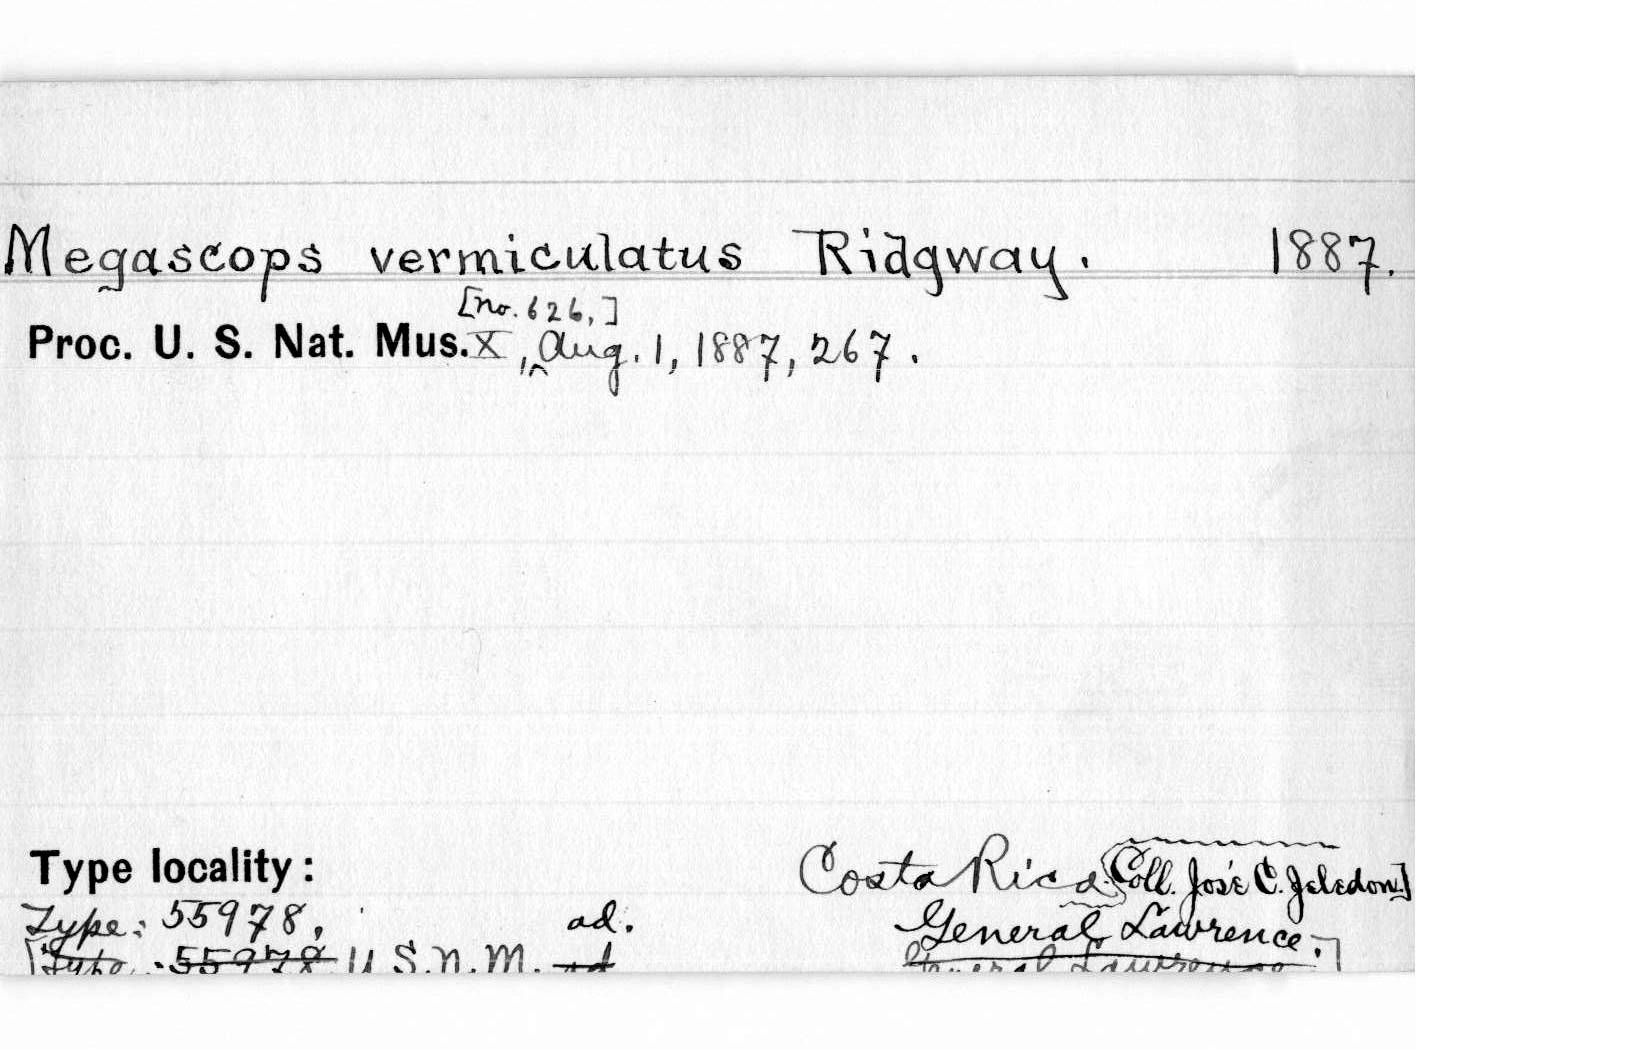 Megascops vermiculatus Ridgway. 1887.
[no. 626,]
Proc. U. S. Nat. Mus. X, Aug. 1, 1887, 267.
Type locality: Costa Rica. Coll. José C. Zeledon]
Type: 55978, ad. General Lawrence.
[Type. 55978 U.S.N.M. ad General Lawrence]